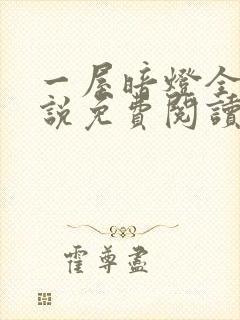 一屋暗燈全
説免費閱讀
霍尊盡